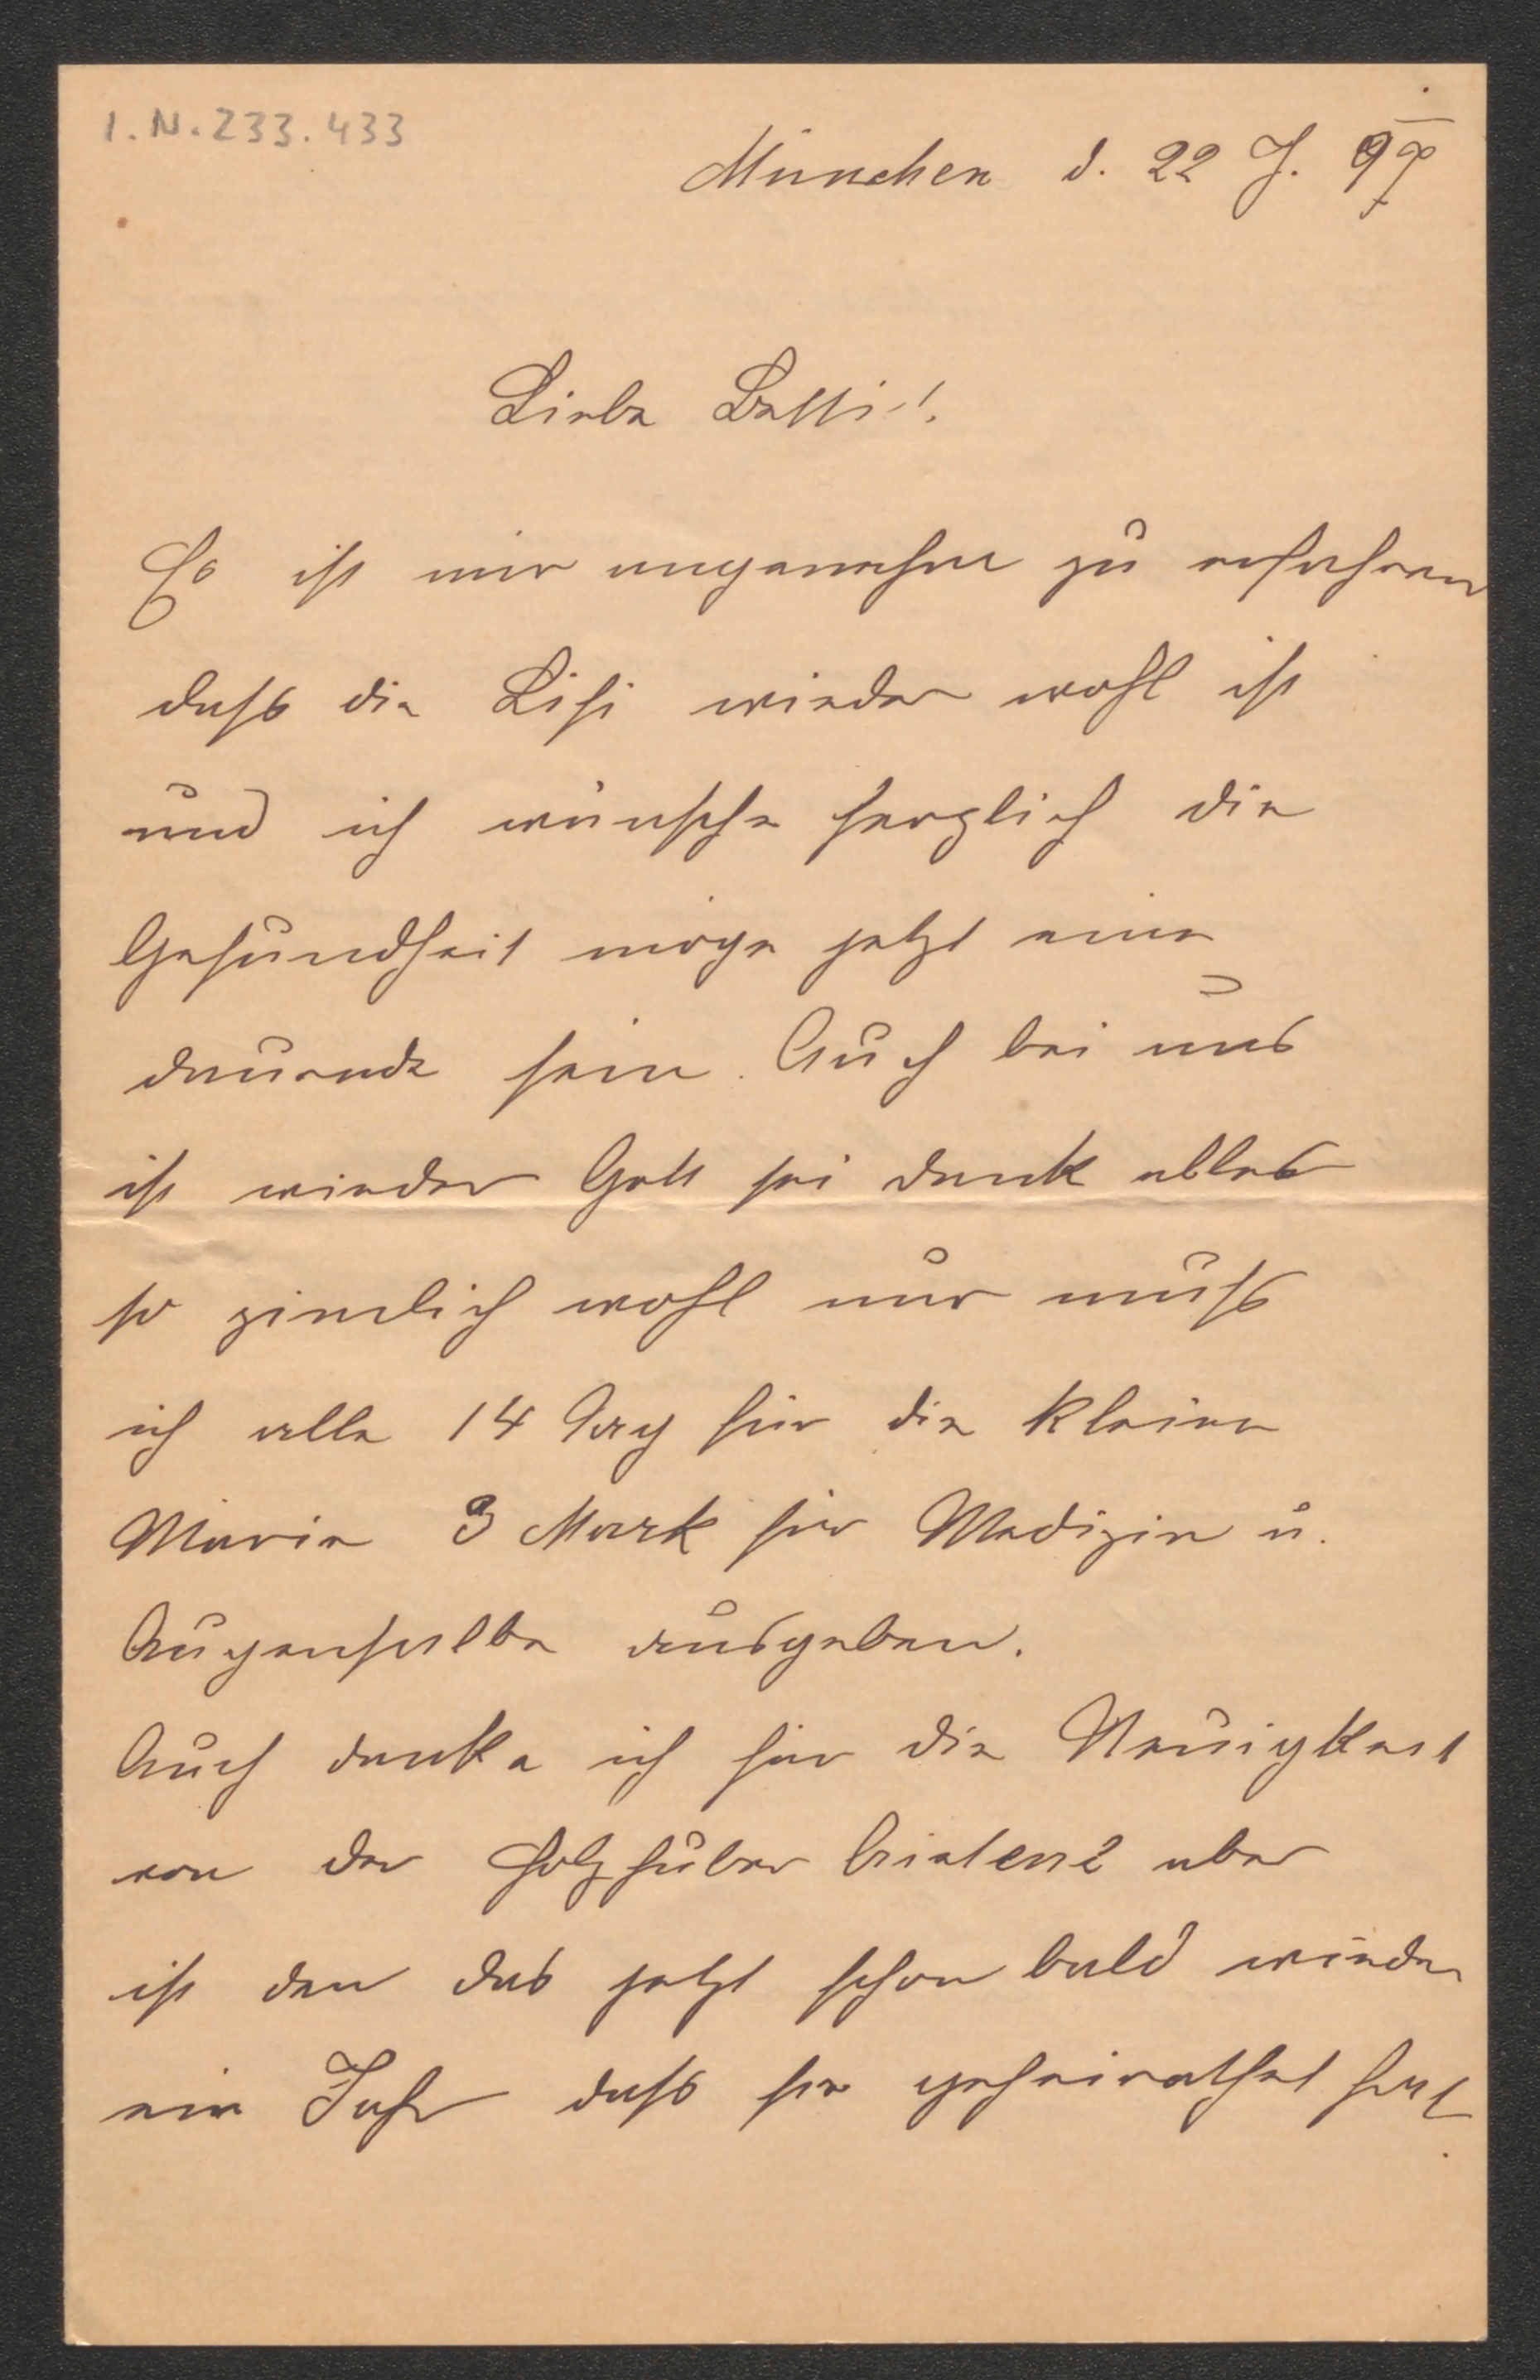 I.N. 233.433
München d. 22 J. 97
Liebe Betti!
Es ist mir angenehm zu erfahren
dass die Lisi wieder wohl ist
und ich wünsche herzlich die
Gesundheit möge jetzt eine
dauernde sein. Auch bei uns
ist wieder Gott sei dank alles
so zimlich wohl nur muß
ich alle 14 Tag für die kleine
Marie 3 Mark für Medizin u.
Augensalbe ausgeben.
Auch danke ich für die Neuigkeit
von der Holzhuber aber
ist den das jetzt schon bald wieder
ein Jahr dass sie geheirathet hat